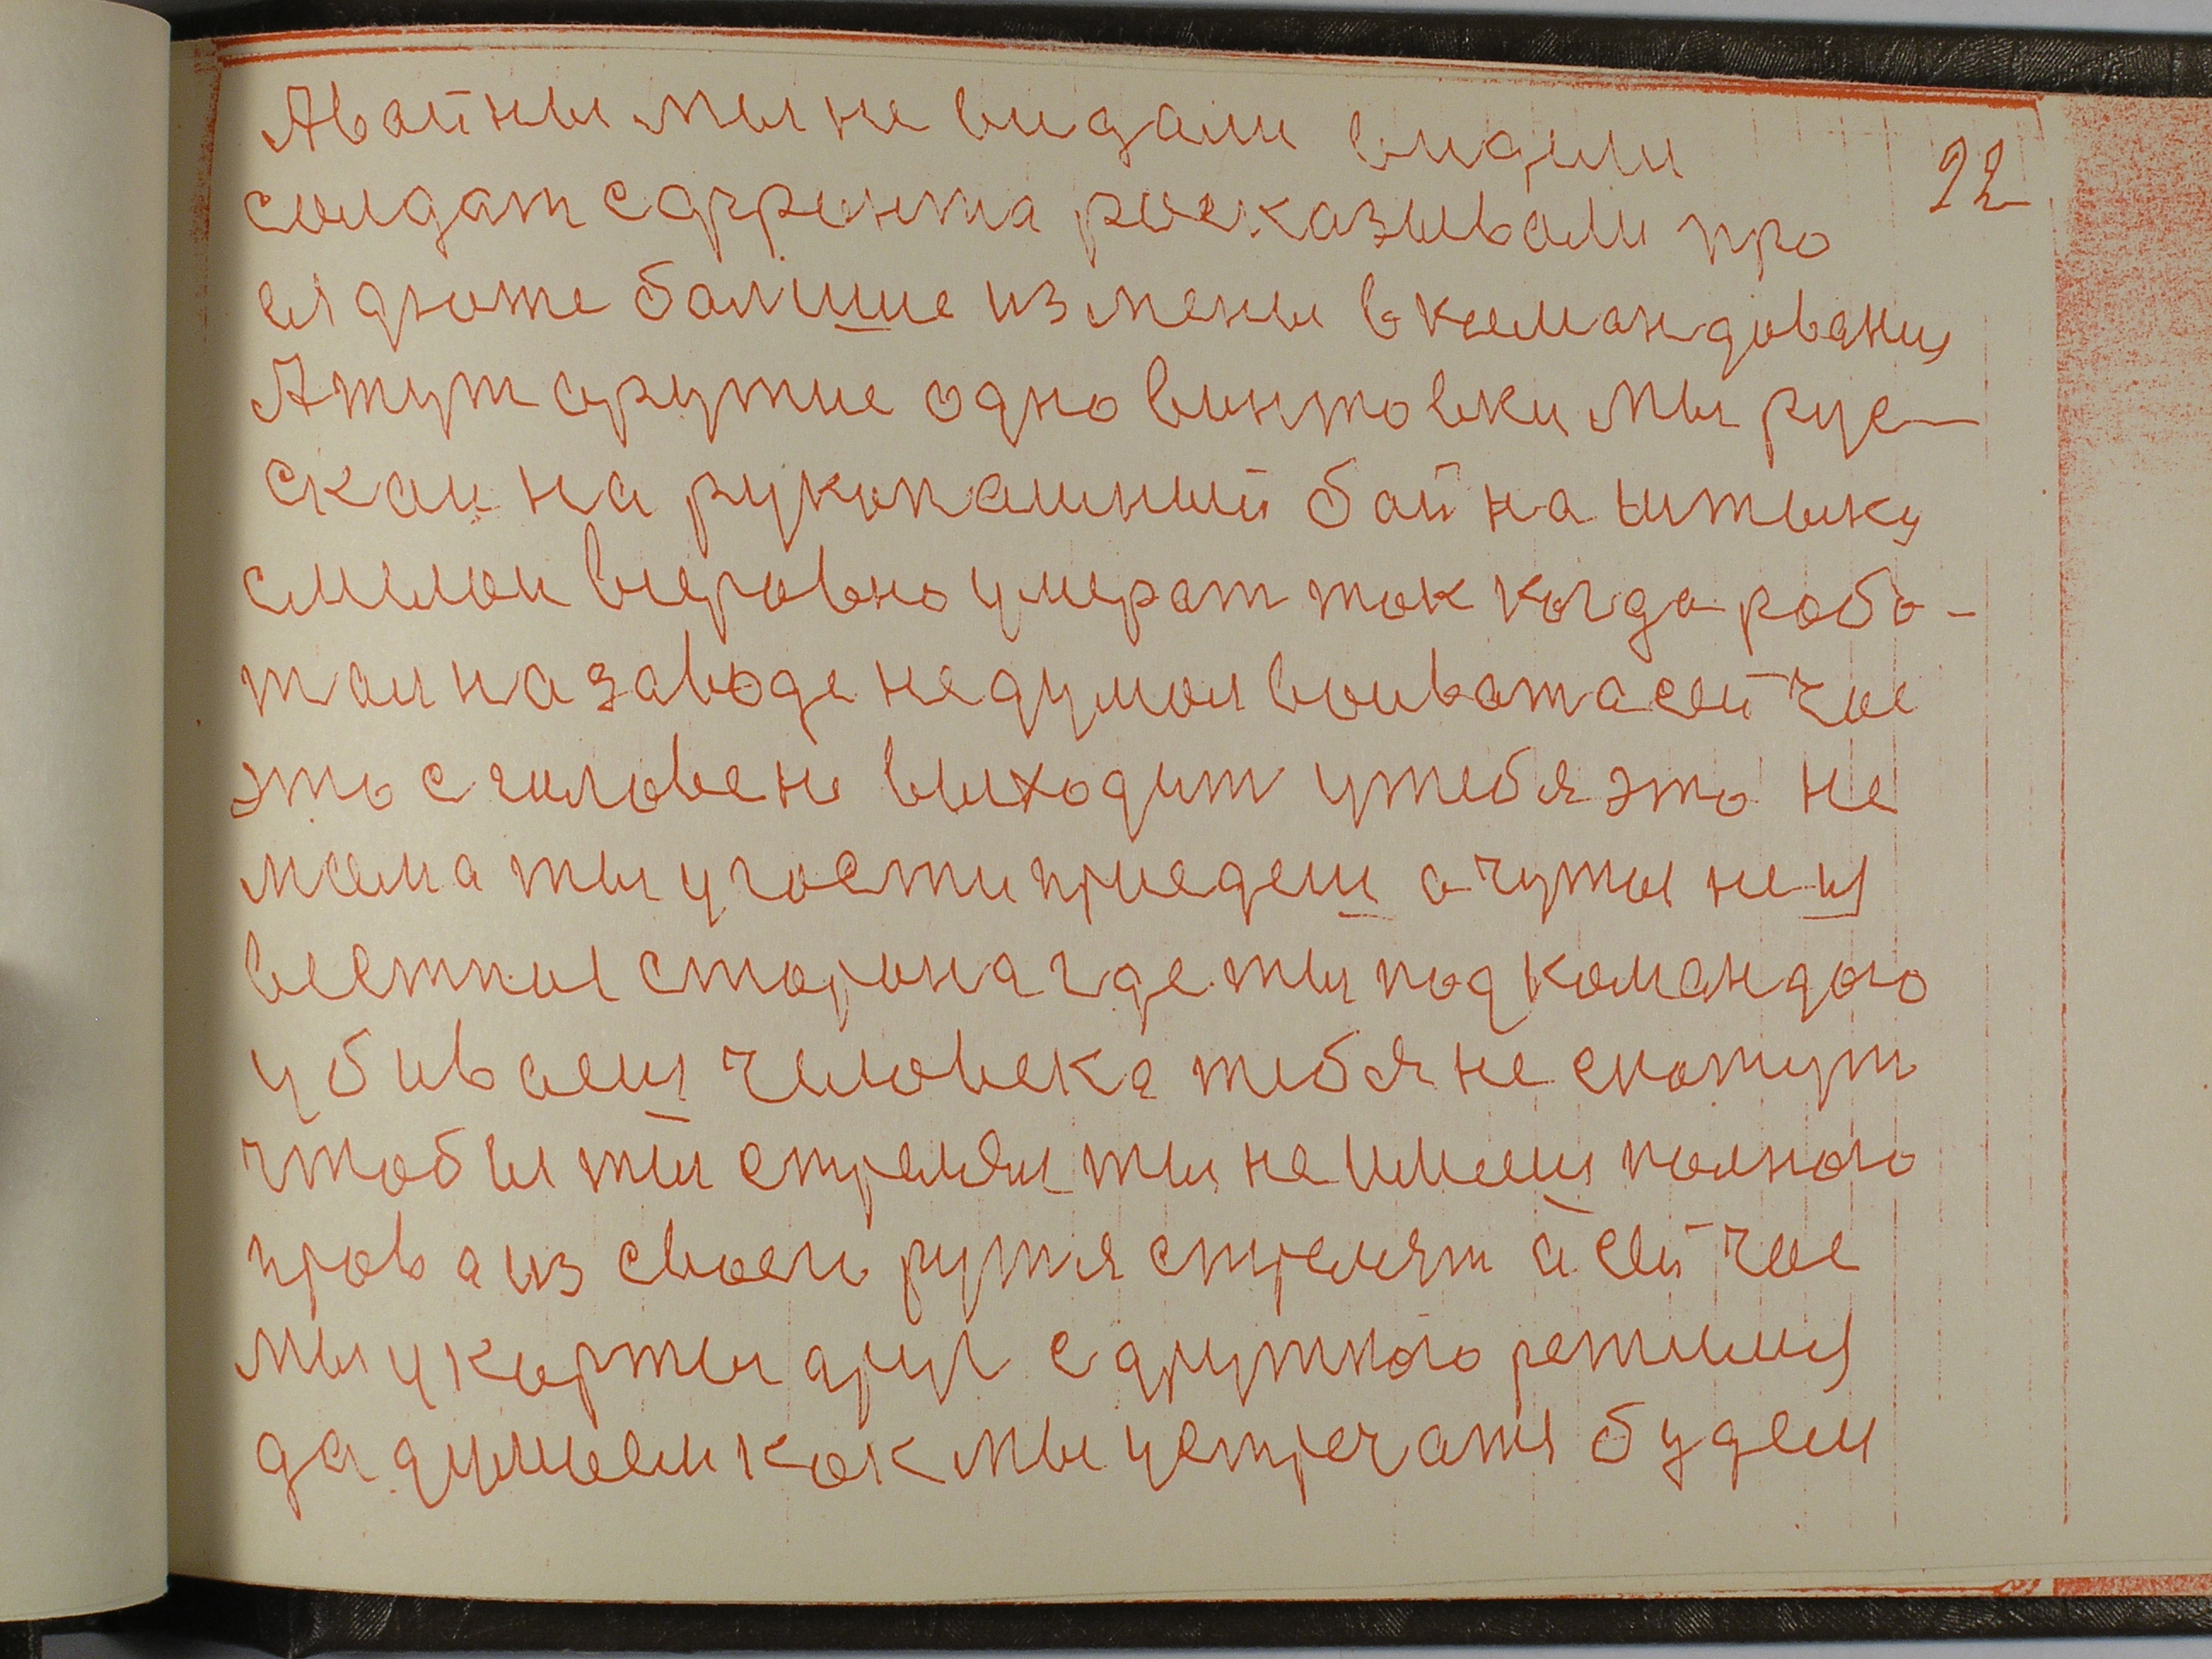 А войны мы не видали видили
22
солдат с фронта росказывали про
ея дюже балшие измены в камандовании
А тут оружие одно винтовки мы рус-
скаи на рукопашный бой на штыку
смелои всеровно умерат ток когда рабо-
тал на заводе не думал воивата сейчас
это с головене выходит у тебя это не
мама ты у гости приедеш а чутое неиз
вестное сторона где ты под командою
убиваеш человека тебя не скажут
чтобы ты стрелял ты не имееш полного
права из своего ружя стрелят а сейчас
мы у карты друг с дружкою режимся
да думаем как мы устречатя будем